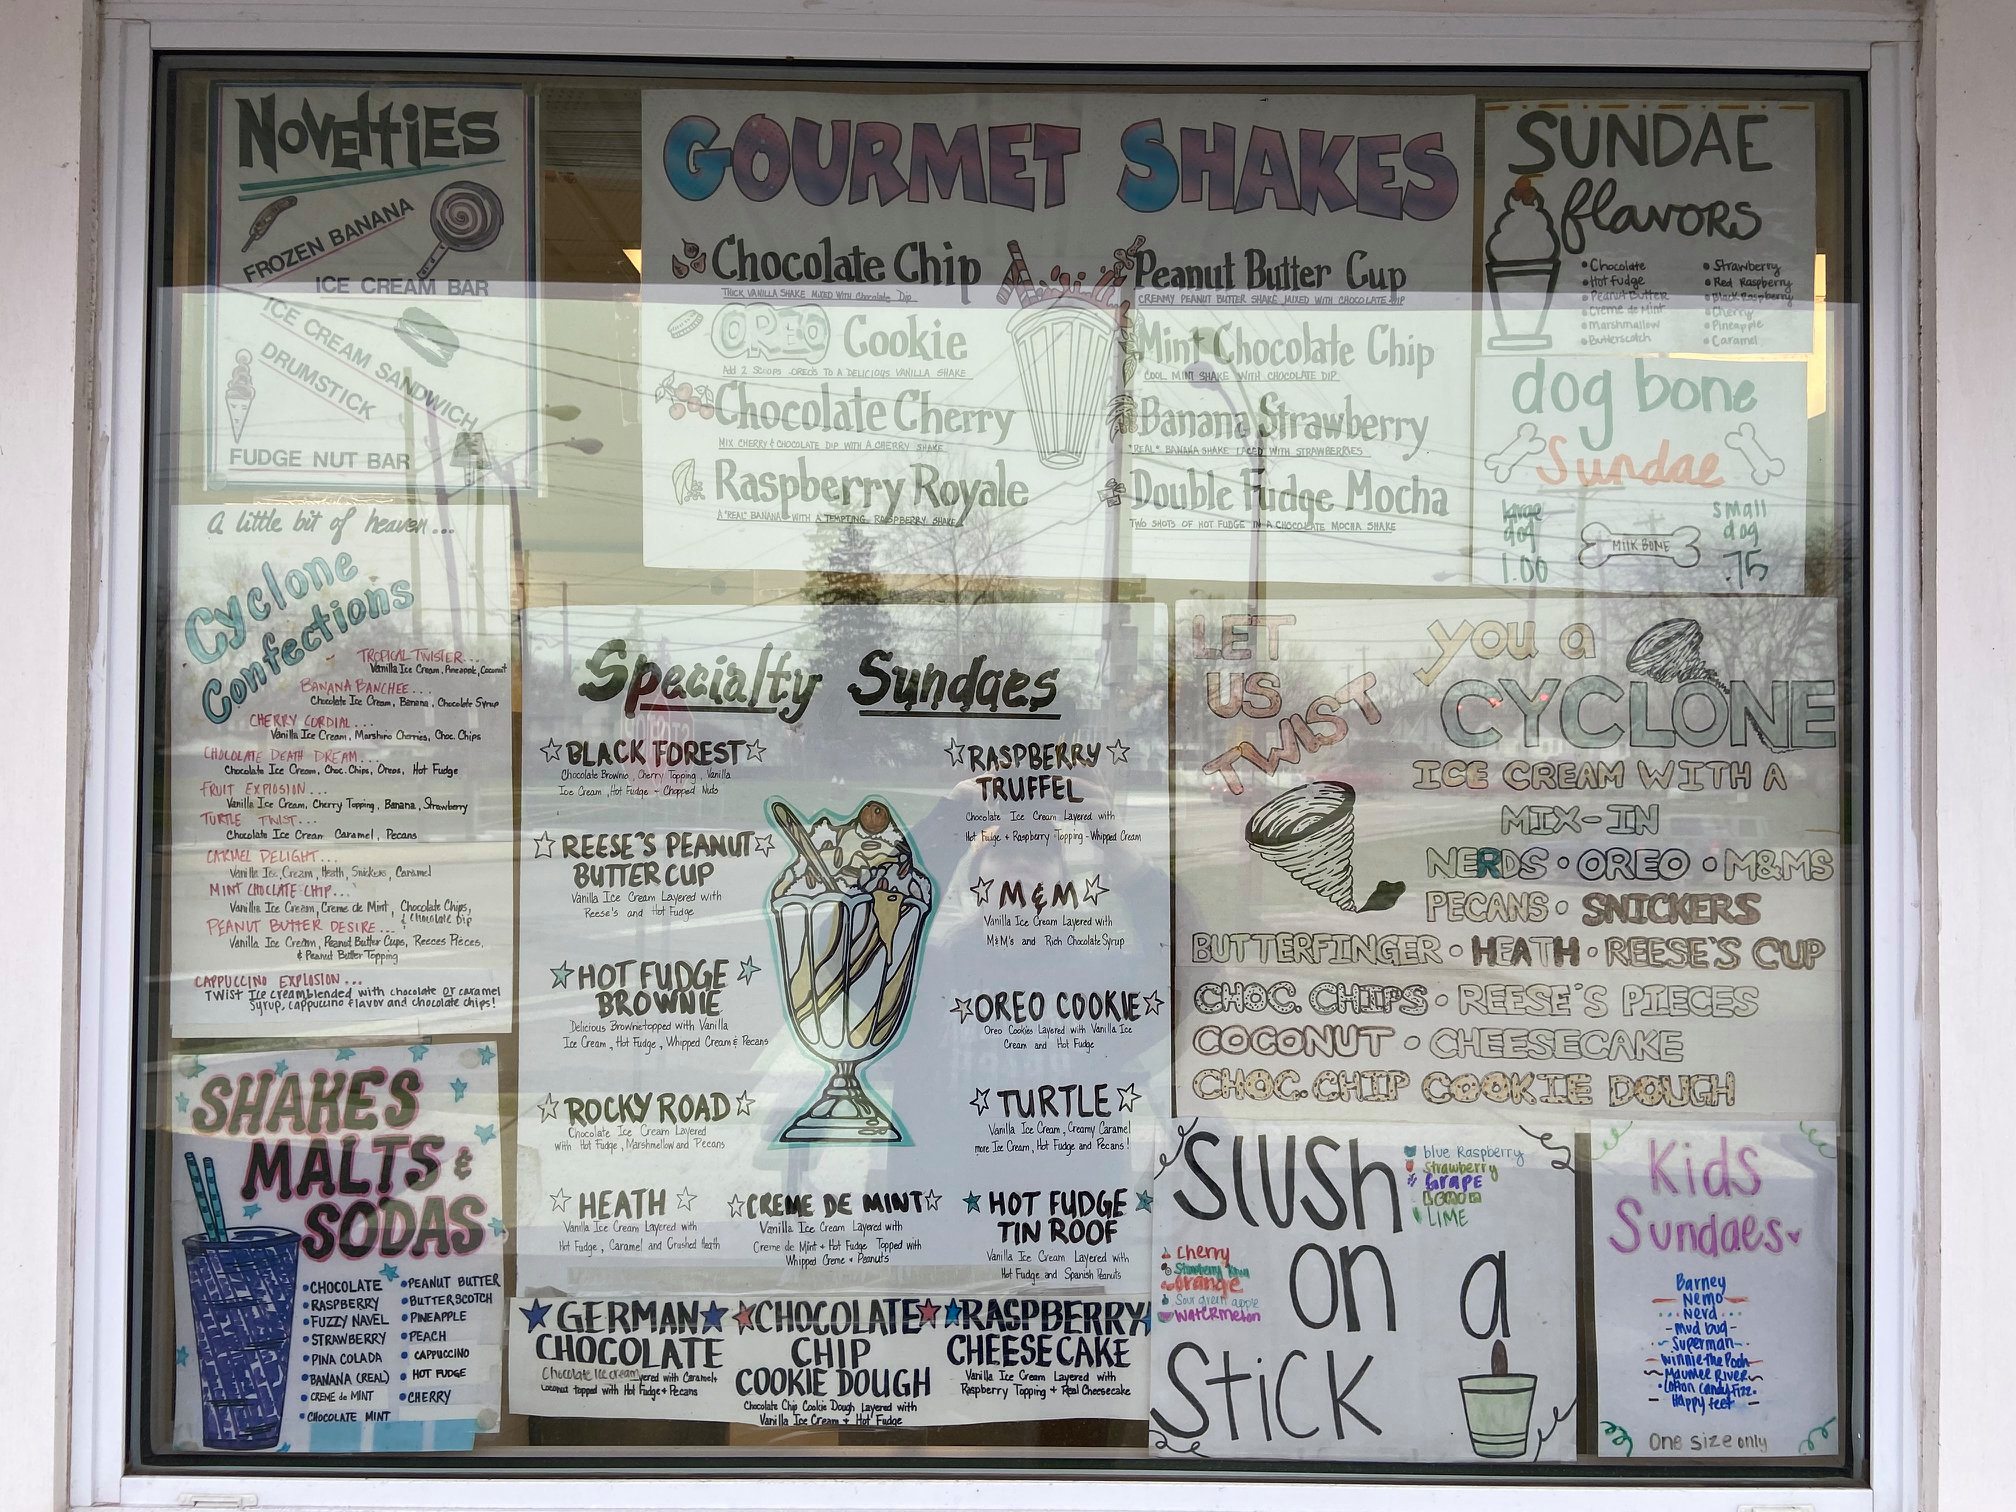 NOVELTIES
FROZEN BANANA
ICE CREAM BAR
ICE CREAM SANDWICH
DRUMSTICK
FUDGE NUT BAR
GOURMET SHAKES
Chocolate Chip
THICK VANILLA SHAKE MIXED WITH Chocolate Dip
OREO Cookie
Add 2 SCOOPS OREO'S TO A DELICIOUS VANILLA SHAKE
Chocolate Cherry
MIX CHERRY & CHOCOLATE DIP WITH A CHERRY SHAKE
Raspberry Royale
A "REAL" BANANA WITH A TEMPTING RASPBERRY SHAKE
Peanut Butter Cup
CREAMY PEANUT BUTTER SHAKE MIXED WITH CHOCOLATE DIP
Mint Chocolate Chip
COOL MINT SHAKE WITH CHOCOLATE DIP
Banana Strawberry
"REAL" BANANA SHAKE LACED WITH STRAWBERRIES
Double Fudge Mocha
TWO SHOTS OF HOT FUDGE IN A CHOCOLATE MOCHA SHAKE
SUNDAE
flavors
Chocolate
Hot fudge
Peanut Butter
Creme de Mint
Marshmallow
Butterscotch
Strawberry
Red Raspberry
Black Raspberry
Cherry
Pineapple
Caramel
dog bone
Sundae
large
dog
1.00
MILK BONE
small
dog
.75
A little bit of heaven...
Cyclone
Confections
TROPICAL TWISTER...
Vanilla Ice Cream, Pineapple, Coconut
BANANA BANCHEE...
Chocolate Ice Cream, Banana, Chocolate Syrup
CHERRY CORDIAL...
Vanilla Ice Cream, Marshino Cherries, Choc. Chips
CHOCOLATE DEATH DREAM...
Chocolate Ice Cream, Choc. Chips, Oreos, Hot Fudge
FRUIT EXPLOSION...
Vanilla Ice Cream, Cherry Topping, Banana, Strawberry
TURTLE TWIST...
Chocolate Ice Cream Caramel, Pecans
CARMEL DELIGHT...
Vanilla Ice Cream, Heath, Snickers, Caramel
MINT CHOCLATE CHIP...
Vanilla Ice Cream, Creme de Mint, Chocolate Chips,
& Chocolate Dip
PEANUT BUTTER DESIRE...
Vanilla Ice Cream, Peanut Butter Cups, Reeces Pieces,
& Peanut Butter Topping
CAPPUCCINO EXPLOSION...
Twist Ice cream blended with chocolate or caramel
Syrup, cappuccino flavor and chocolate chips!
Specialty Sundaes
BLACK FOREST
Chocolate Brownie, Cherry Topping, Vanilla
Ice Cream, Hot Fudge - Chopped Nuts
REESE'S PEANUT
BUTTER CUP
Vanilla Ice Cream Layered with
Reese's and Hot Fudge
HOT FUDGE
BROWNIE
Delicious Brownie topped with Vanilla
Ice Cream, Hot Fudge, Whipped Cream & Pecans
ROCKY ROAD
Chocolate Ice Cream Layered
with Hot Fudge, Marshmellow and Pecans
HEATH
Vanilla Ice Cream Layered with
Hot Fudge, Caramel and Crushed Heath
CREME DE MINT
Vanilla Ice Cream Layered with
Creme de Mint + Hot Fudge Topped with
Whipped Creme + Peanuts
RASPBERRY
TRUFFEL
Chocolate Ice Cream Layered with
Hot Fudge + Raspberry Topping - Whipped Cream
M&M
Vanilla Ice Cream Layered with
M&M's and Rich Chocolate Syrup
OREO COOKIE
Oreo Cookies Layered with Vanilla Ice
Cream and Hot Fudge
TURTLE
Vanilla Ice Cream, Creamy Caramel
more Ice Cream, Hot Fudge and Pecans!
HOT FUDGE
TIN ROOF
Vanilla Ice Cream Layered with
Hot Fudge and Spanish Peanuts
GERMAN
CHOCOLATE
Chocolate Ice cream yered with Caramel +
coconut topped with Hot Fudge + Pecans
CHOCOLATE
CHIP
COOKIE DOUGH
Chocolate Chip Cookie Dough Layered with
Vanilla Ice Cream + Hot Fudge
RASPBERRY
CHEESECAKE
Vanilla Ice Cream Layered with
Raspberry Topping + Real Cheesecake
LET
US
TWIST
you a
CYCLONE
ICE CREAM WITH A
MIX-IN
NERDS • OREO • M&MS
PECANS • SNICKERS
BUTTERFINGER • HEATH • REESE'S CUP
CHOC. CHIPS • REESE'S PIECES
COCONUT • CHEESECAKE
CHOC. CHIP COOKIE DOUGH
SHAKES
MALTS &
SODAS
CHOCOLATE
RASPBERRY
FUZZY NAVEL
STRAWBERRY
PINA COLADA
BANANA (REAL)
CREME de MINT
CHOCOLATE MINT
PEANUT BUTTER
BUTTERSCOTCH
PINEAPPLE
PEACH
CAPPUCCINO
HOT FUDGE
CHERRY
Slush
on a
Stick
blue Raspberry
Strawberry
GRAPE
LEMON
LIME
Cherry
Strawberry Kiwi
Orange
Sour green apple
Watermelon
Kids
Sundaes
Barney
Nemo
Nerd
Mud bug
Superman
Winnie the Pooh
Maumee River
Cotton Candy Fizz
Happy feet
One size only